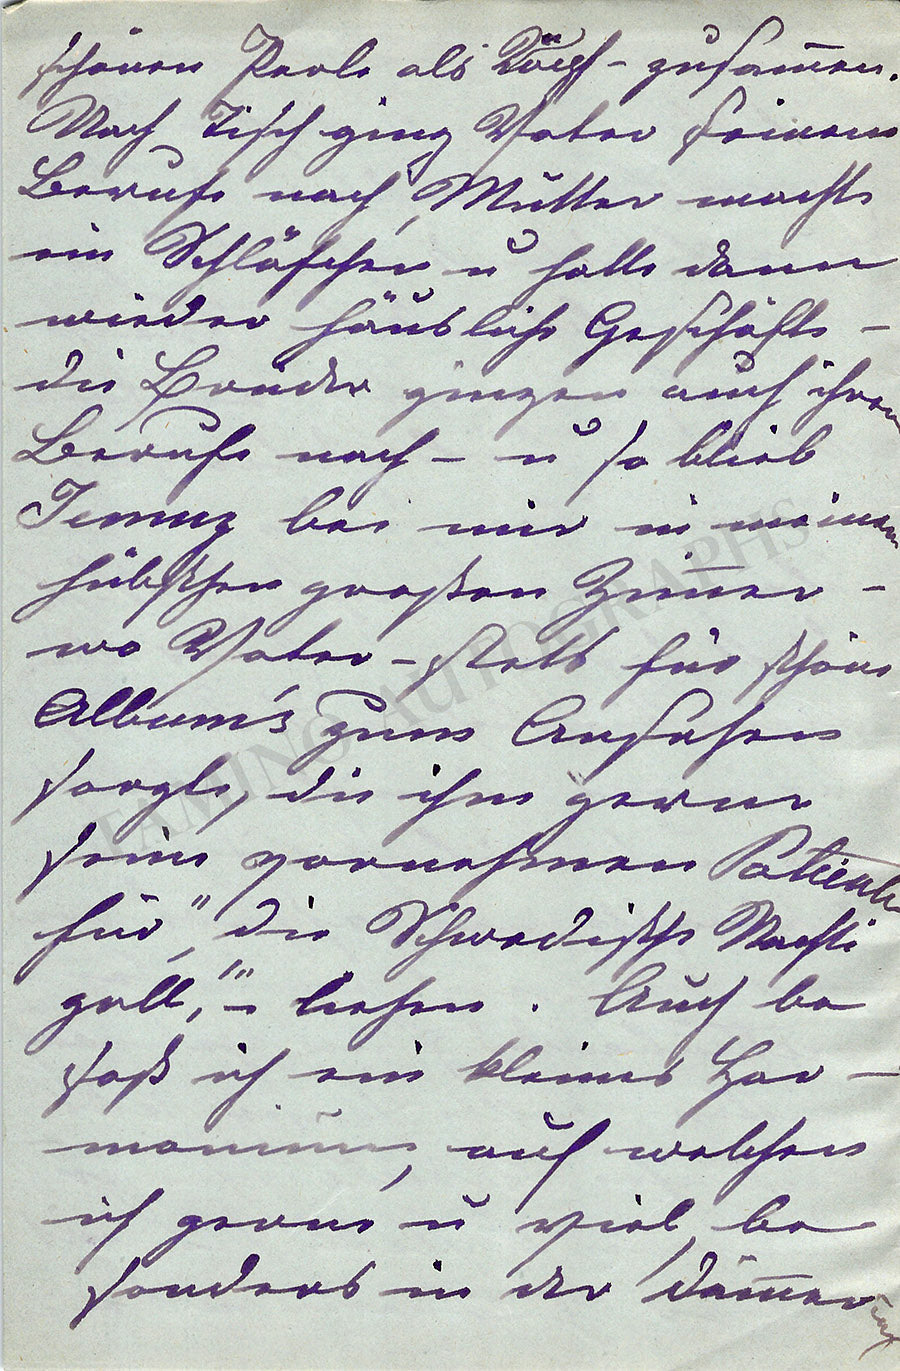 schönen Perle als – zusammen.
Nach Tisch ging Vater seinem
Berufe nach, Mutter machte
ein Schläfchen u hatte dann
wieder häusliche Geschäfte –
die Brüder gingen auch ihrem
Berufe nach – u so blieb
Jenny bei mir in meinem
hübschen großen Zim̅er –
wo Vater – stets für schöne
Album's zum Ansehen
sorgte, die ihm gerne
seine vornehmen Patienten
für „die Schwedische Nachti
gall," – liehen. Auch be
saß ich ein kleines Har–
monium, auf welchem
ich gerne u viel, be
sonders in der Däm̅erung
TAMINO AUTOGRAPHS